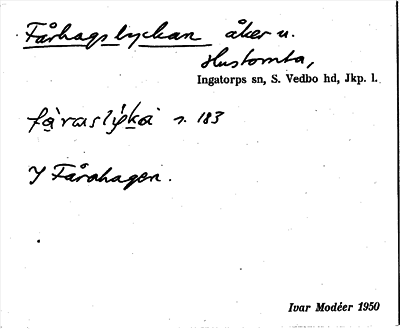 Fårhagslyckan åker u.
Hustomta,
Ingatorps sn, S. Vedbo hd, Jkp. l.
s. 183
I Fårahagen.
Ivar Modéer 1950